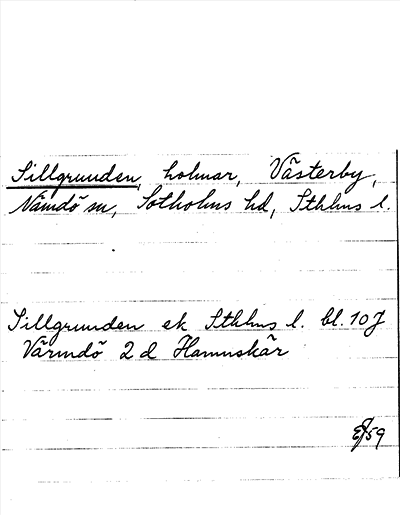 Sillgrunden, holmar, Västerby,
Nämdö sn, Sotholms hd, Sthlms l.
Sillgrunden ek Sthlms l. bl. 10J
Värmdö 2d Hamnskär
59